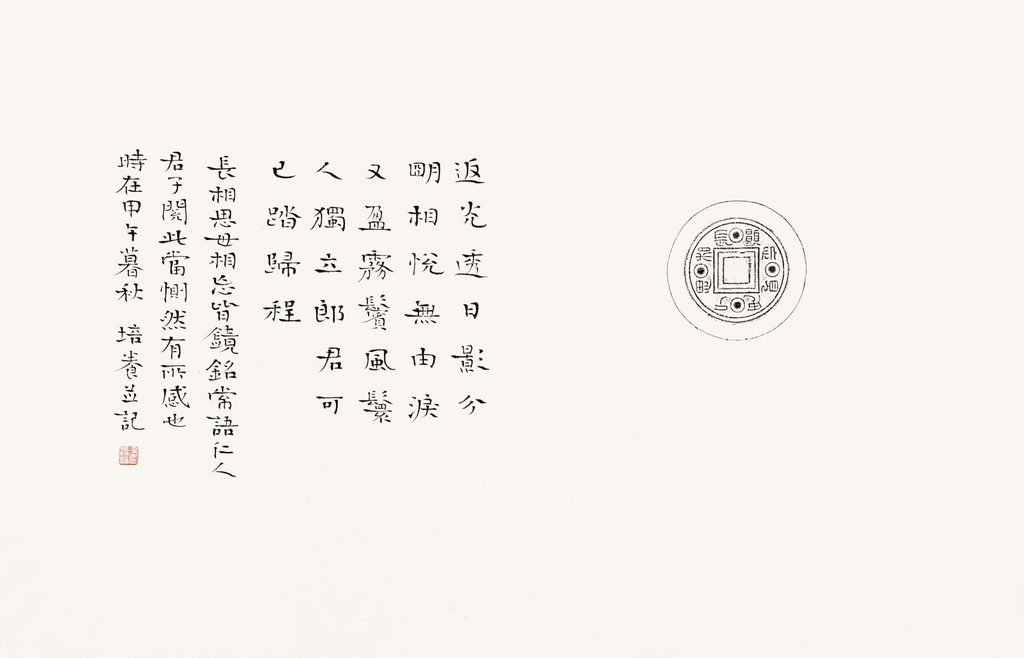 返光透日影分
朙相悅無由淚
又盈霧鬢風鬟
人獨立郎君可
已踏歸程
長相思毋相忘皆鏡銘常語仁人
君子閱此當惻然有所感也
時在甲午暮秋 培養並記